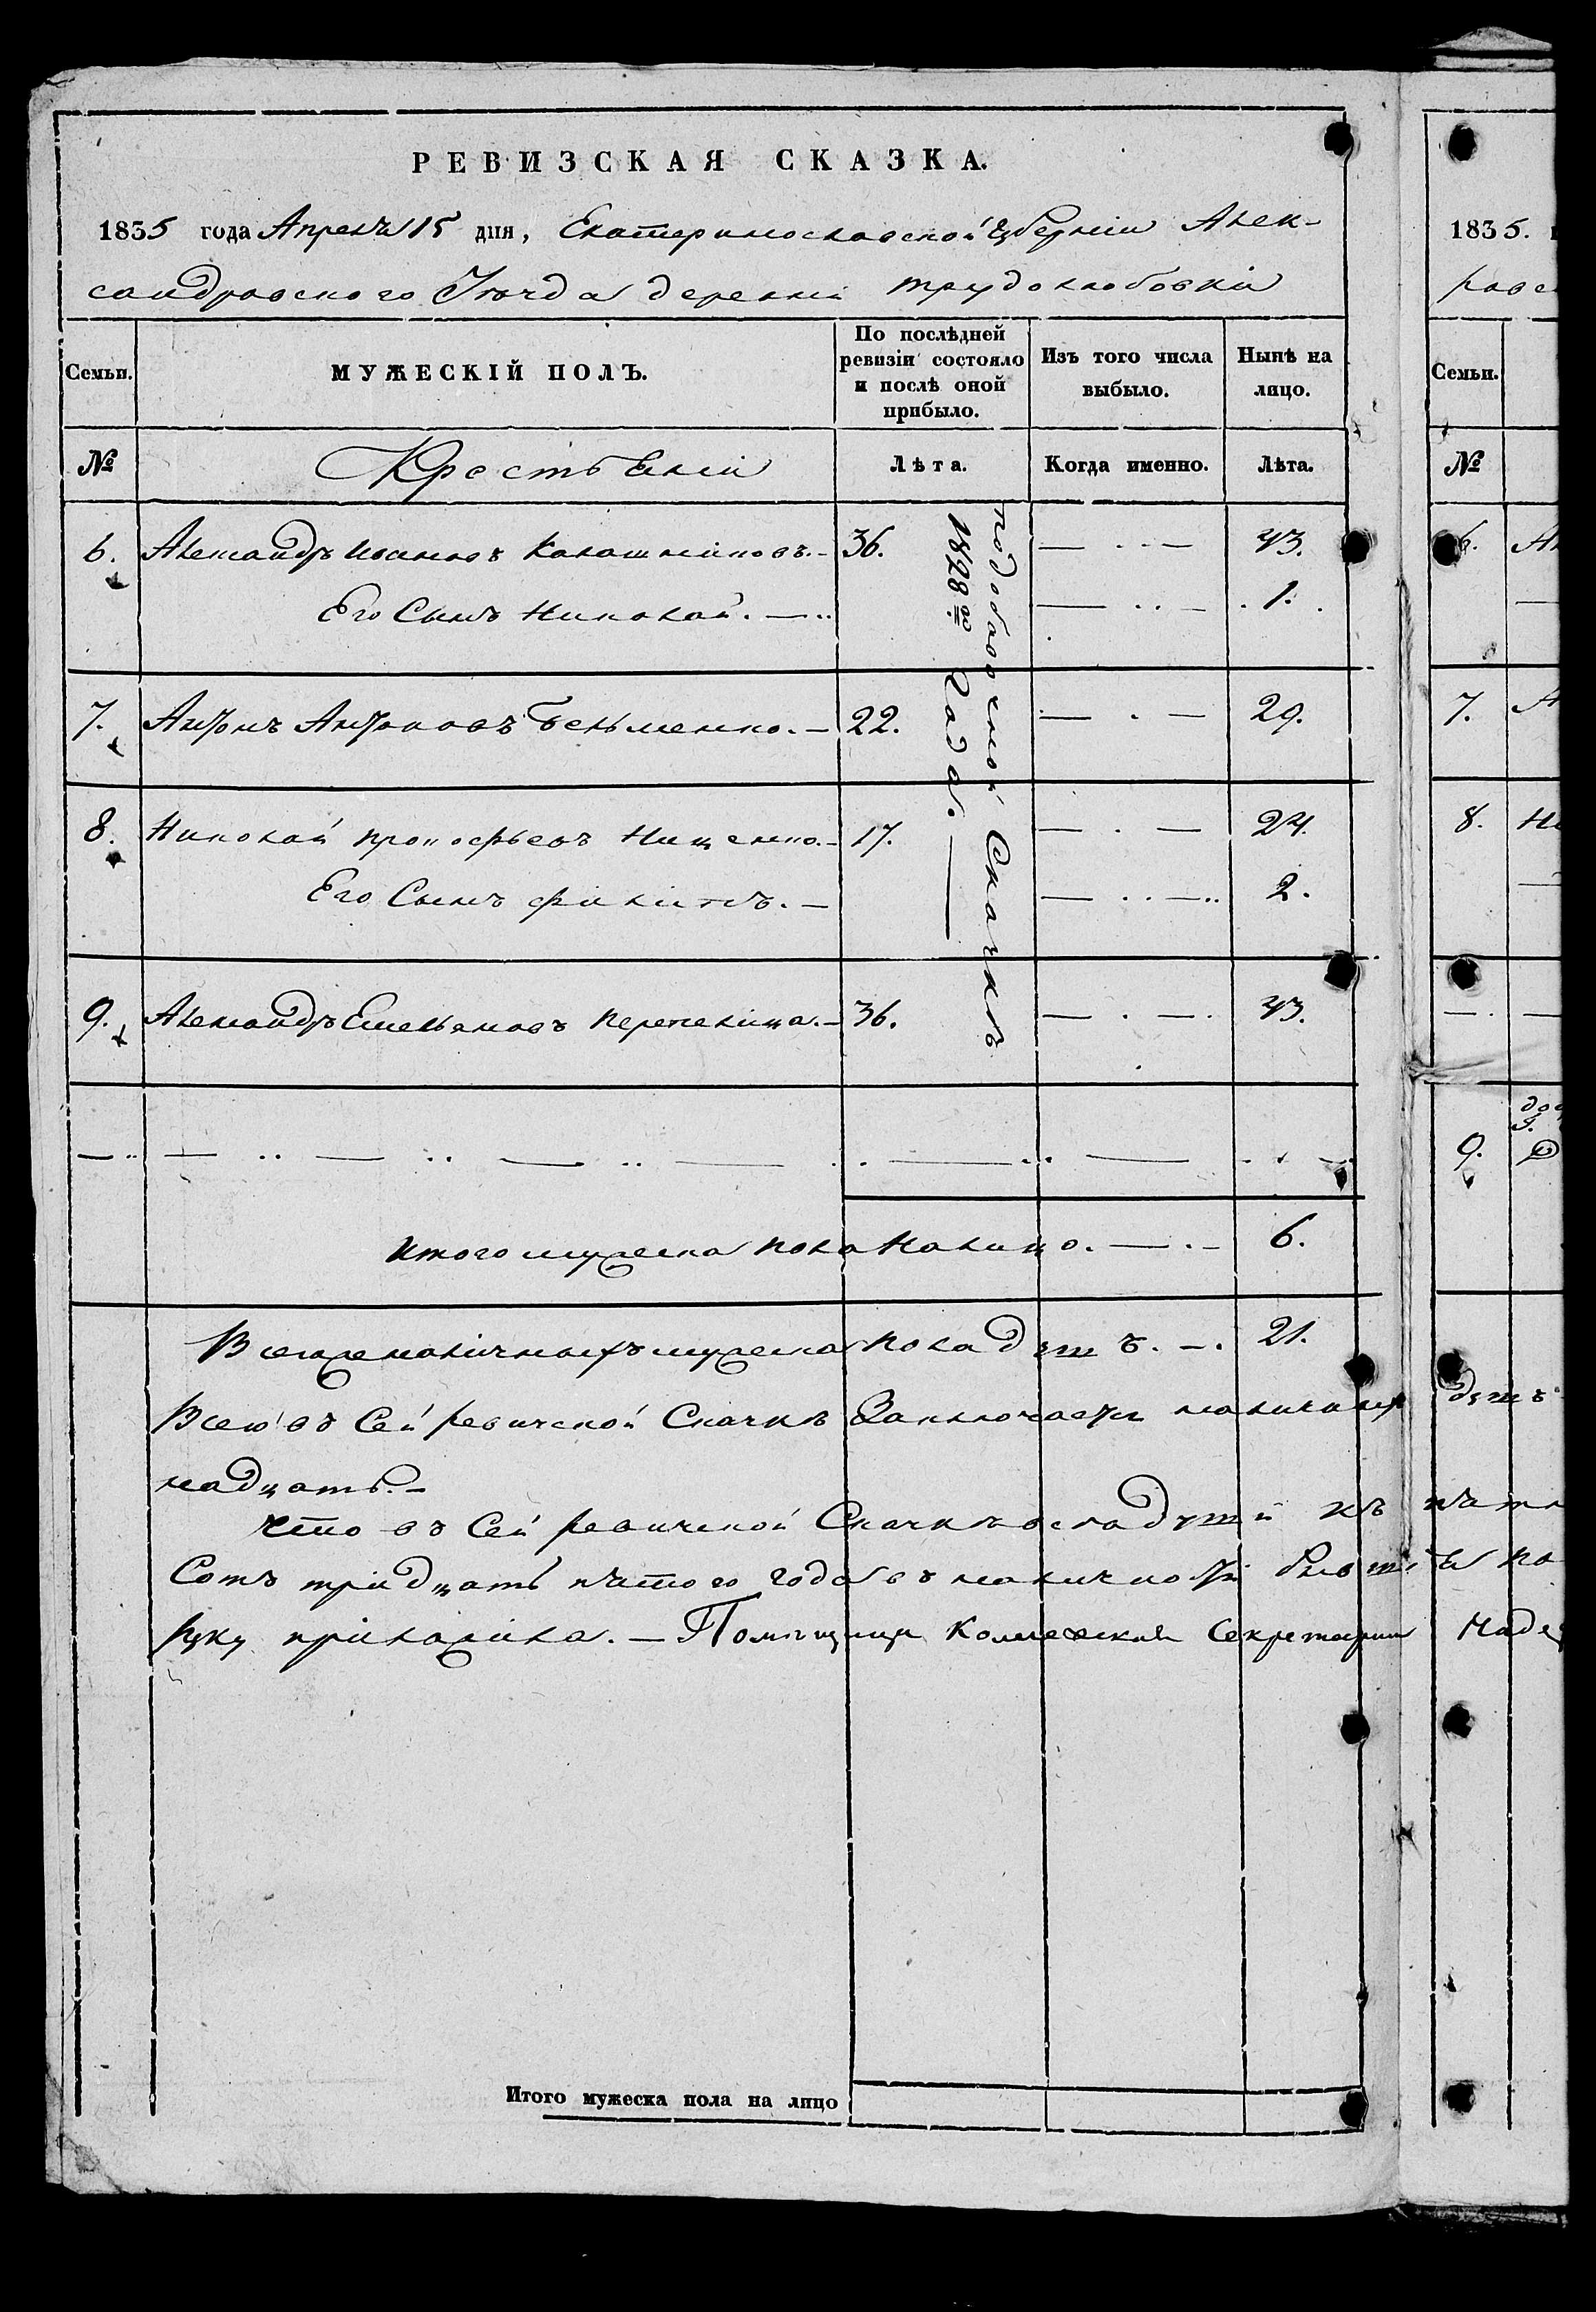 РЕВИЗСКАЯ СКАЗКА.
1835 года Апреля 15 дня, Екатеринославской Губерніи Алек-
сандровского Уезда деревни трудолюбовки
Семьи.
МУЖЕСКІЙ ПОЛЪ.
По послѣдней ревизіи состояло и послѣ оной прибыло.
Изъ того числа выбыло.
Нынѣ на лицо.
№
Крестьяни
Лѣта.
Когда именно.
Лѣта.
подобавочной Сказкѣ
1828го Года.
6. Александръ Ивановъ Калашниковъ. 36. 43.
Его Сынъ Николай. 1.
7. Антонъ Антоновъ Бельменко. 22. 29.
8. Николай прокофьевъ Нищенко. 17. 24.
Его Сынъ филипъ. 2.
9. Александръ Емельяновъ Перепелица. 36. 43.
Итого мужеска пола Налицо. 6.
Всегоже наличныхъ мужеска пола душъ. 21.
Всего въ Сей ревизской Сказкѣ Заключается наличныхъ
надцать.
что въ Сей ревизской Сказкѣ все душы къ
Сотъ тридцать пятого года въ наличности
руку приложила. Помѣщица Колежская Секретарша
Итого мужеска пола на лицо
1835.
Семьи.
№
6.
7.
8.
9.
душъ